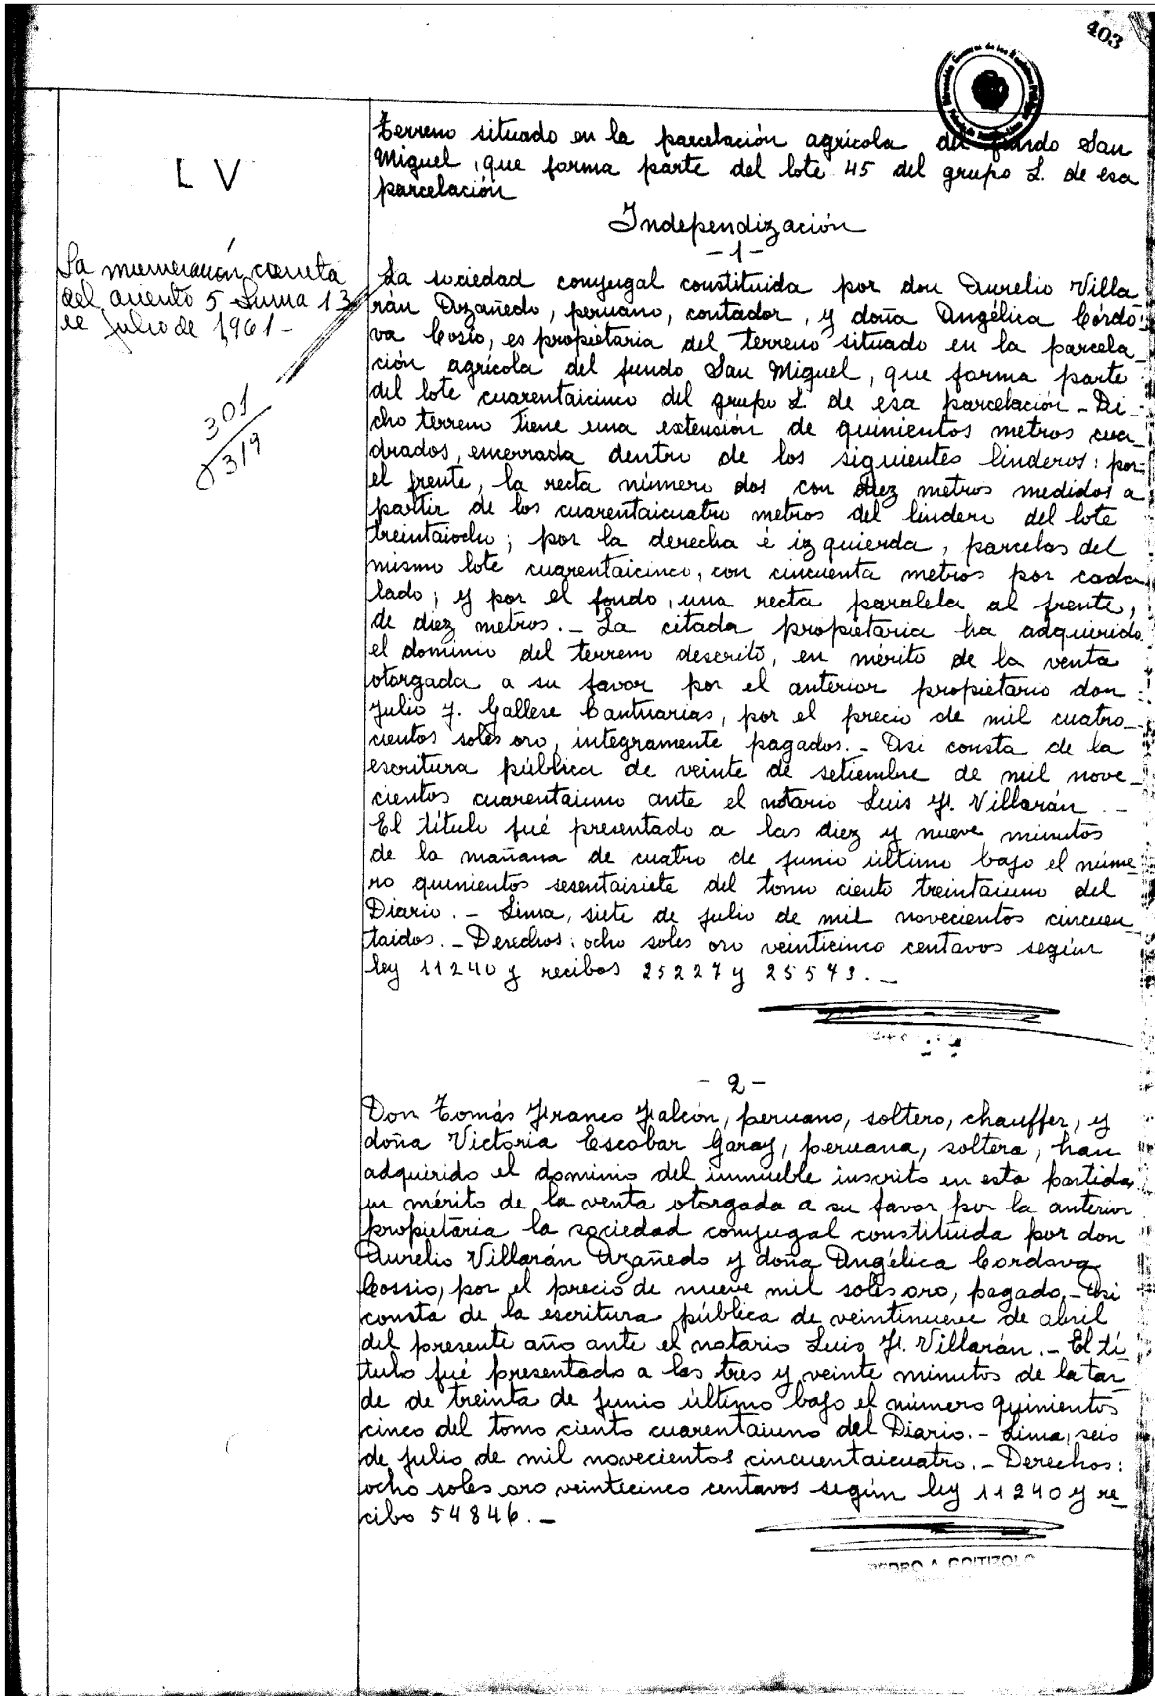 403
Terreno situado en la parcelación agrícola del fundo San
Miguel, que forma parte del lote 45 del grupo L. de esa
parcelación
L V
Independización
-1-
La numeración correcta
del asiento 5 Lima 13
de Julio de 1961-
301
319
La sociedad conyugal constituida por don Aurelio Villa
rán Azañedo, peruano, contador, y doña Angélica Córdo
va Cosio, es propietaria del terreno situado en la parcela
ción agrícola del fundo San Miguel, que forma parte
del lote cuarentaicinco del grupo L de esa parcelación - Di
cho terreno tiene una extensión de quinientos metros cua
drados, encerrada dentro de los siguientes linderos: por
el frente, la recta número dos con diez metros medidos a
partir de los cuarentaicuatro metros del lindero del lote
treintaiocho; por la derecha é izquierda, parcelas del
mismo lote cuarentaicinco, con cincuenta metros por cada
lado; y por el fondo, una recta paralela al frente,
de diez metros. - La citada propietaria ha adquirido
el dominio del terreno descrito, en mérito de la venta
otorgada a su favor por el anterior propietario don
Julio J. Gallese Cantuarias, por el precio de mil cuatro
cientos soles oro, integramente pagados. - Asi consta de la
escritura pública de veinte de setiembre de mil nove
cientos cuarentaiuno ante el notario Luis F. Villarán. -
El título fué presentado a las diez y nueve minutos
de la mañana de cuatro de junio último bajo el núme
ro quinientos sesentaisiete del tomo ciento treintaiuno del
Diario. - Lima, siete de julio de mil novecientos cincuen
taidos. - Derechos: ocho soles oro veinticinco centavos según
ley 11240 y recibos 25227 y 25573. -
- 2 -
Don Tomás Franco Falcón, peruano, soltero, chauffer, y
doña Victoria Escobar Garay, peruana, soltera, han
adquirido el dominio del inmueble inscrito en esta partida
en mérito de la venta otorgada a su favor por la anterior
propietaria la sociedad conyugal constituida por don
Aurelio Villarán Azañedo y doña Angélica Cordova
Cossio, por el precio de nueve mil soles oro, pagado. - Asi
consta de la escritura pública de veintinueve de abril
del presente año ante el notario Luis F. Villarán. - El tí
tulo fué presentado a las tres y veinte minutos de la tar
de de treinta de junio último bajo el número quinientos
cinco del tomo ciento cuarentaiuno del Diario. - Lima, seis
de julio de mil novecientos cincuentaicuatro. - Derechos:
ocho soles oro veinticinco centavos según ley 11240 y re
cibo 54846. -
PEDRO A. GOITIZOLO